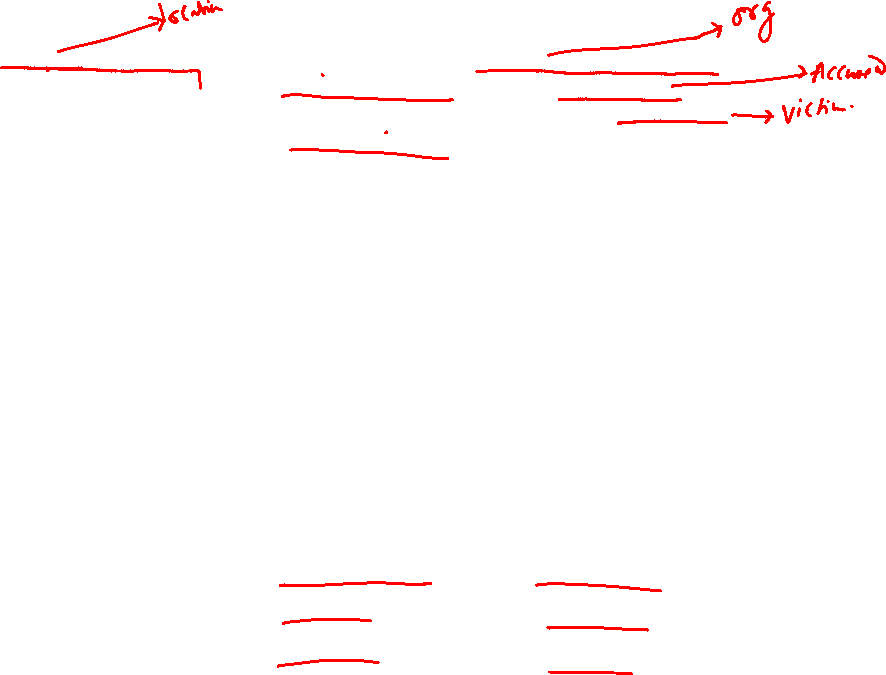 location
org
Accused
victim.